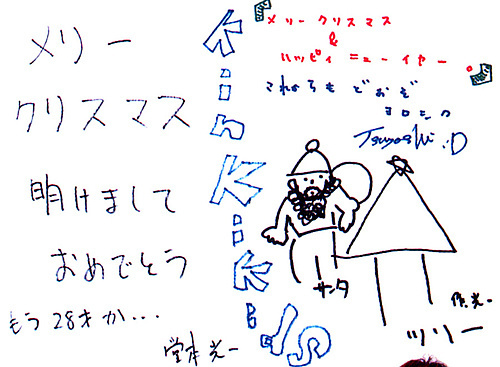 メリー
クリスマス
明けまして
おめでとう
もう28才か...
堂本光一
KinKi Kids
メリークリスマス
&
ハッピィニューイヤー。
これからもどおぞ
ヨロシク
Tsuyoshi :D
サンタ
作.光一
ツリー